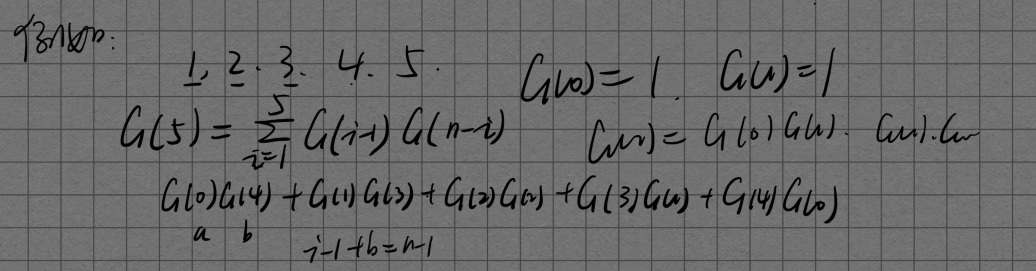 例如:
1, 2. 3. 4. 5. G(0)=1. G(1)=1
G(5) = \sum_{i=1}^{5} G(i-1) G(n-i) G(2) = G(0) G(1).
G(0)G(4) + G(1) G(3) + G(2) G(2) + G(3) G(1) + G(4) G(0)
a b i-1+b=n-1